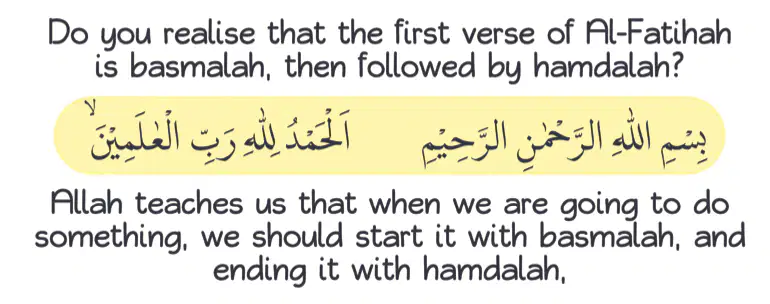 Do you realise that the first verse of Al-Fatihah
is basmalah, then followed by hamdalah?
بِسْمِ اللّٰهِ الرَّحْمٰنِ الرَّحِيْمِ اَلْحَمْدُ لِلّٰهِ رَبِّ الْعٰلَمِيْنَۙ
Allah teaches us that when we are going to do
something, we should start it with basmalah, and
ending it with hamdalah,